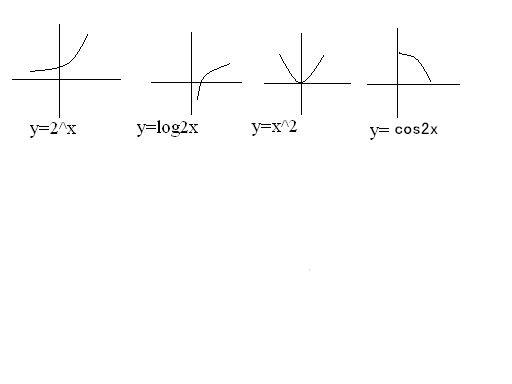 y=2^x
y=log2x
y=x^2
y= cos2x